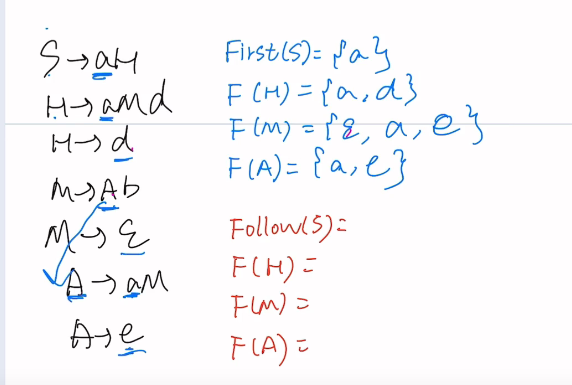 S→aH
H→aMd
H→d
M→Ab
M→ε
A→aM
A→e
First(S)={a}
F(H)={a,d}
F(M)={ε, a, e}
F(A)={a,e}
Follow(S)=
F(H)=
F(M)=
F(A)=